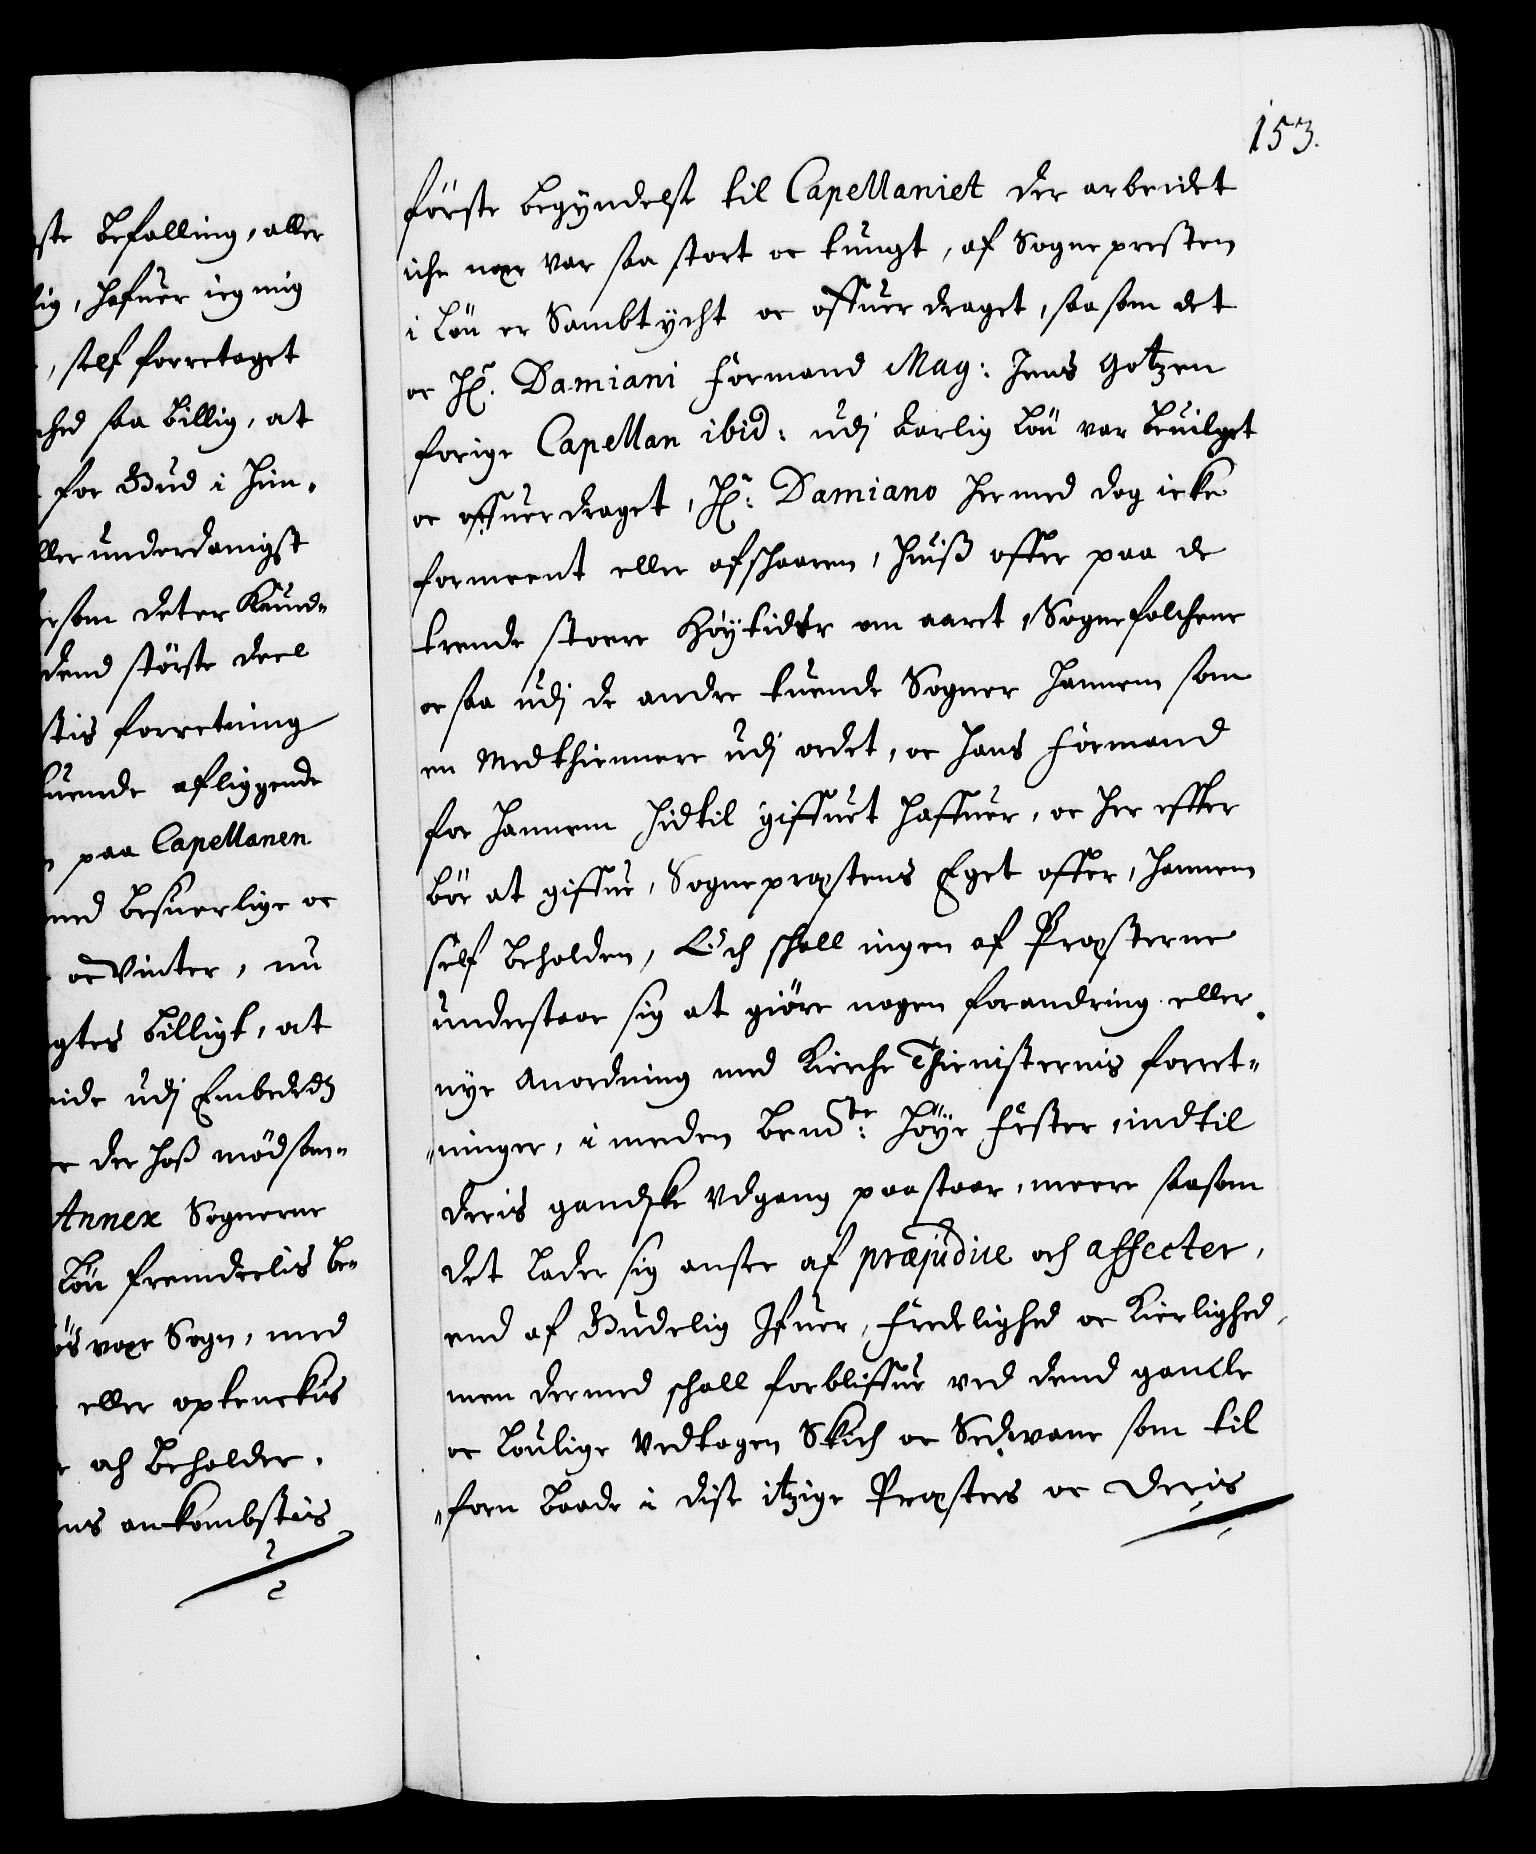 ste befalling, aller
lig, hafuer ieg mig
, self forretaget
hed saa billig, at
for Gud i Him-
ller underdanigst
som deter Kund-
dend störste deel
stis forretning
tuende afliggende
paa Capellanen
med besuerlige oc
oc Vinter, nu
gtes billigt, at
eide udj Embedidz
der hoß mödsom-
Annex Sognerne
Löu fremdeelis be-
vaxe Sogn, med
eller optenckis
och beholder.
ns ankombstis
153.
förste begÿndelse til Capellaniet der arbeidet
iche nær var saa stort oc tungt, af Sognepresten
i Löu er Sambtÿcht oc offuerdraget, saasom det
oc Hr. Damiani formand Mag: Jens Gotzen
forige Capellan ibid: udj Karlig Löu var beuilget
oc offuerdraget, Hr: Damiano hermed dog icke
formeent eller afschaaren, huiß offer paa de
trende stoere Höÿtider om aaret, Sognefolchene
oc saa udj de andre tuende Sogner hannem som
en Medthiennere udj ordet, oc hans formand
for hannem hidtil giffuet haffuer, oc her effter
bör at giffue, Sogneprestens Eget offer, hannem
self beholden, Och schall ingen af Præsterne
understaae sig at giöre nogen forandring eller
nÿe Anordning med Kirche Thienisternis forret-
ninger, i meden bemte: Höÿe fester, indtil
deris gandske Udgang paastaar, meere saasom
det lader sig ansee af præjudice och affecter,
end af Gudelig Jfuer, fredelighed oc Kierlighed,
men dermed schall forbliffue ved dend gamle
oc loulige Vedtagen Skich oc Sedwane som til
forn baade i dise itzige Præsters oc Deris